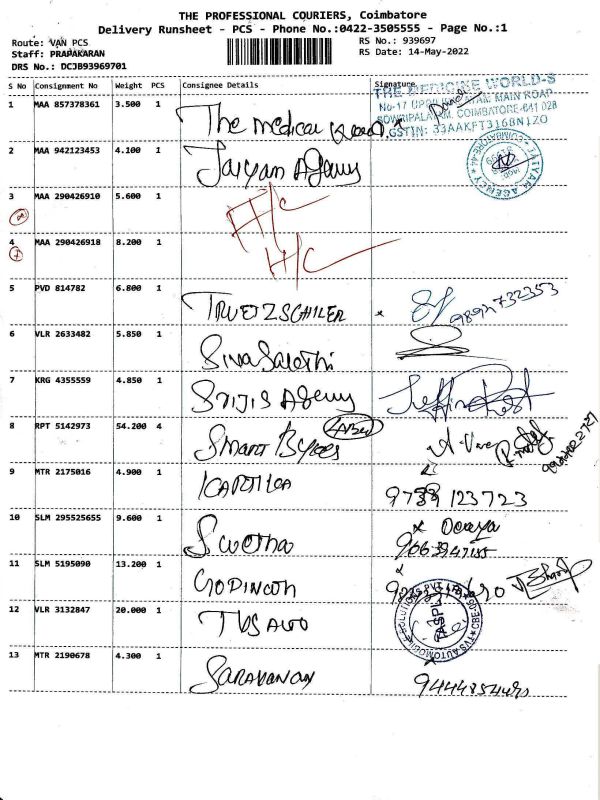 THE PROFESSIONAL COURIERS, Coimbatore
Delivery Runsheet - PCS - Phone No.:0422-3505555 - Page No.:1
Route: VAN PCS RS No.: 939697
Staff: PRAPAKARAN RS Date: 14-May-2022
DRS No.: DCJB93969701
S No Consignment No Weight PCS Consignee Details Signature
THE MEDICINE WORLD-S
MAIN ROAD
COIMBATORE-641 028
GSTIN: 33AAKFT3168N1ZO
1 MAA 857378361 3.500 1 The medical
2 MAA 942123453 4.100 1 Jaiyam Agency
JAIYAM AGENCY
3 MAA 290426910 5.600 1 H/C
4 MAA 290426918 8.200 1 H/C
5 PVD 814782 6.800 1 TRUETZSCHILER 9892732353
6 VLR 2633482 5.850 1 SivaSarothi
7 KRG 4355559 4.850 1 Srijis Agency
8 RPT 5142973 54.200 4 Smart Bykes
9 MTR 2175016 4.900 1 9738 123723
10 SLM 295525655 9.600 1 Swetha
11 SLM 5195090 13.200 1
12 VLR 3132847 20.000 1 TVS AUTO
TASPL
13 MTR 2190678 4.300 1 SARAVANAN